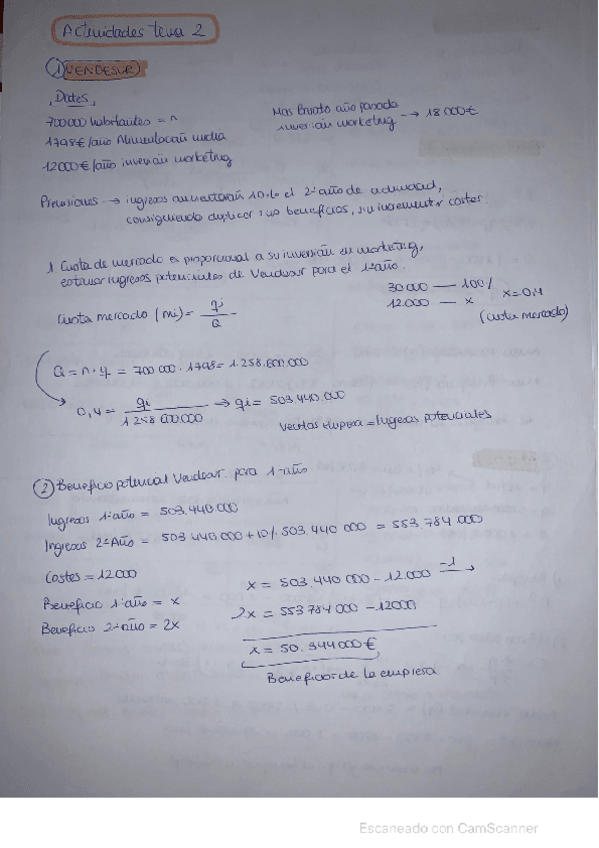 Actividades tema 2
1) VENDESUR
Datos,
700000 habitantes = n
1798€/año Alimentación media
12000€/año inversión marketing
Mas Barato año pasado
inversión marketing → 18000€
Previsiones → ingresos aumentarán 10% el 2º año de actividad,
consiguiendo duplicar sus beneficios, sin incrementar costes.
1. Cuota de mercado es proporcional a su inversión en marketing,
estimar ingresos potenciales de Vendesur para el 1º año.
Cuota mercado (mi) = qi / Q
30000 — 100%
12.000 — x
x=0,4
(cuota mercado)
Q = n · q = 700 000 · 1798 = 1.258.600.000
0,4 = qi / 1 258 600.000 ⇒ qi = 503.440.000
Ventas empresa = Ingresos potenciales
2 Beneficio potencial Vendesur para 1º año
Ingresos 1º año = 503.440 000
Ingresos 2º Año = 503 440 000 + 10% 503.440 000 = 553.784 000
Costes = 12000
Beneficio 1º año = x
Beneficio 2º año = 2x
x = 503.440 000 - 12.000 -1
2x = 553 784 000 - 12000
x = 50.344 000€
Beneficios de la empresa
Escaneado con CamScanner